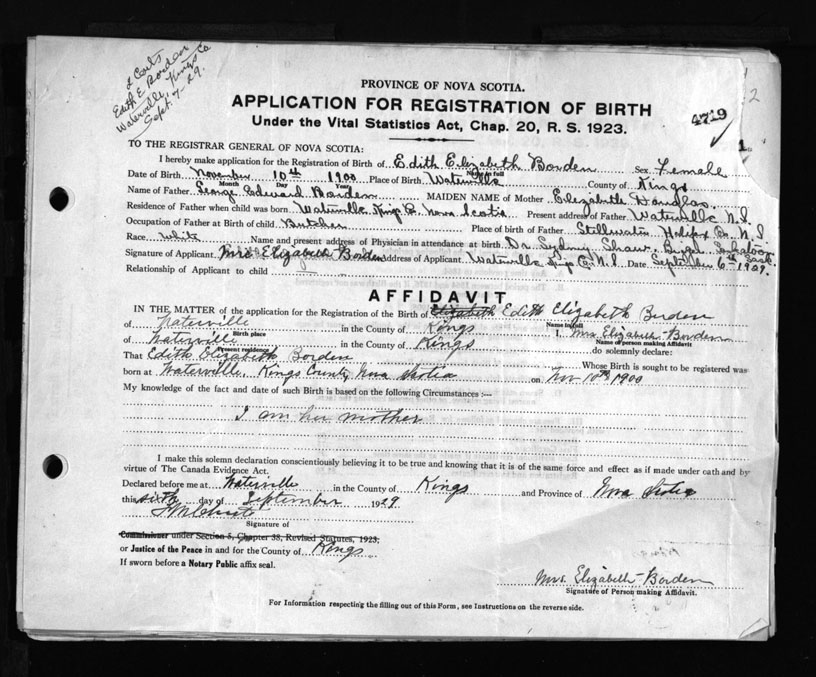 2 Certs
Edith E Borden
Waterville Kings Co
Sept. 7-29.
PROVINCE OF NOVA SCOTIA.
APPLICATION FOR REGISTRATION OF BIRTH
Under the Vital Statistics Act, Chap. 20, R. S. 1923.
4719
TO THE REGISTRAR GENERAL OF NOVA SCOTIA:
I hereby make application for the Registration of Birth of Edith Elizabeth Borden Sex Female
Name in full
Date of Birth November 10th 1900 Place of Birth Waterville County of Kings
Month Day Year
Name of Father George Edward Borden MAIDEN NAME of Mother Elizabeth Douglas
Residence of Father when child was born Waterville Kings Co. Nova Scotia Present address of Father Waterville N.S
Occupation of Father at Birth of child Butcher Place of birth of Father Stillwater Halifax Co. N.S
Race White Name and present address of Physician in attendance at birth Dr. Sydney Shaw Sask.
Signature of Applicant Mrs Elizabeth Borden Address of Applicant Waterville Kings Co. N.S. Date September 6th 1929.
Relationship of Applicant to child
AFFIDAVIT
IN THE MATTER of the application for the Registration of the Birth of Elizabeth Edith Elizabeth Borden
Name in full
of Waterville in the County of Kings I, Mrs Elizabeth Borden
Birth place Name of person making Affidavit
of Waterville in the County of Kings do solemnly declare:
Present residence
That Edith Elizabeth Borden Whose Birth is sought to be registered was
born at Waterville, Kings County, Nova Scotia on Nov 10th 1900
My knowledge of the fact and date of such Birth is based on the following Circumstances :—
I am her mother
I make this solemn declaration conscientiously believing it to be true and knowing that it is of the same force and effect as if made under oath and by
virtue of The Canada Evidence Act.
Declared before me at Waterville in the County of Kings and Province of Nova Scotia
this sixth day of September 1929
Signature of
Commissioner under Section 5, Chapter 38, Revised Statutes, 1923,
or Justice of the Peace in and for the County of Kings
If sworn before a Notary Public affix seal.
Mrs. Elizabeth Borden
Signature of Person making Affidavit.
For Information respecting the filling out of this Form, see Instructions on the reverse side.